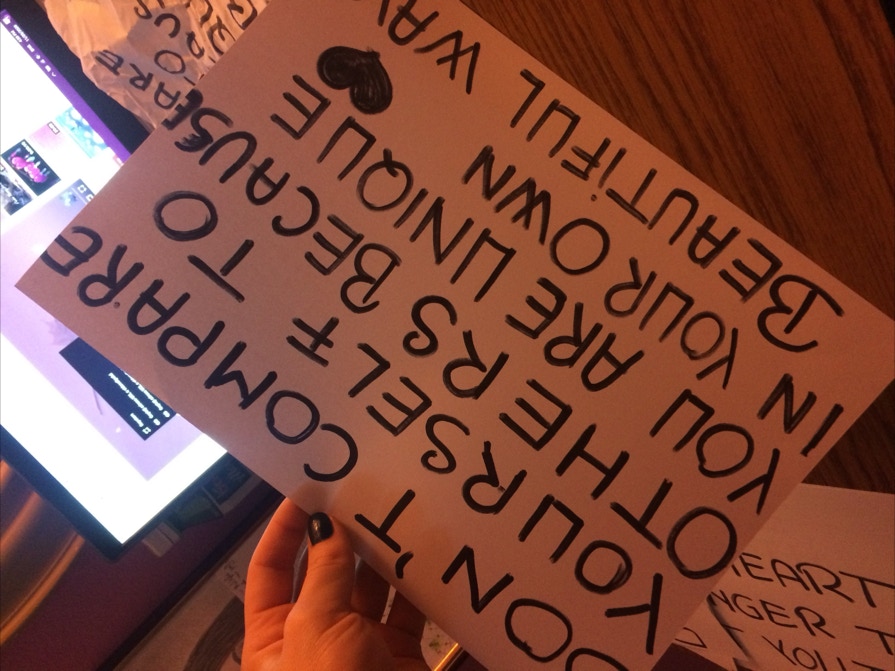 DON'T COMPARE
YOURSELF TO
OTHERS BECAUSE
YOU ARE UNIQUE
IN YOUR OWN
BEAUTIFUL WAY
HEART
NGER T
YOU